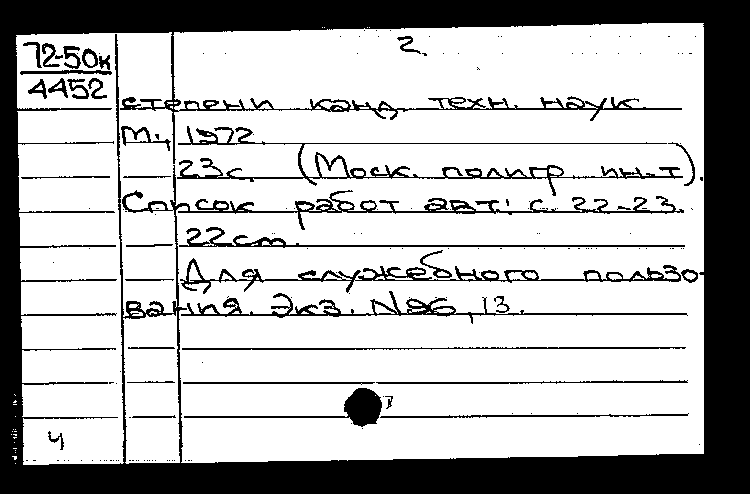 2.
72-50к
4452
степени канд. техн. наук.
М., 1972.
23с. (Моск. полигр. ин-т).
Список работ авт.: с. 22-23.
22см.
Для служебного пользо-
вания. Экз. №96, 13.
4